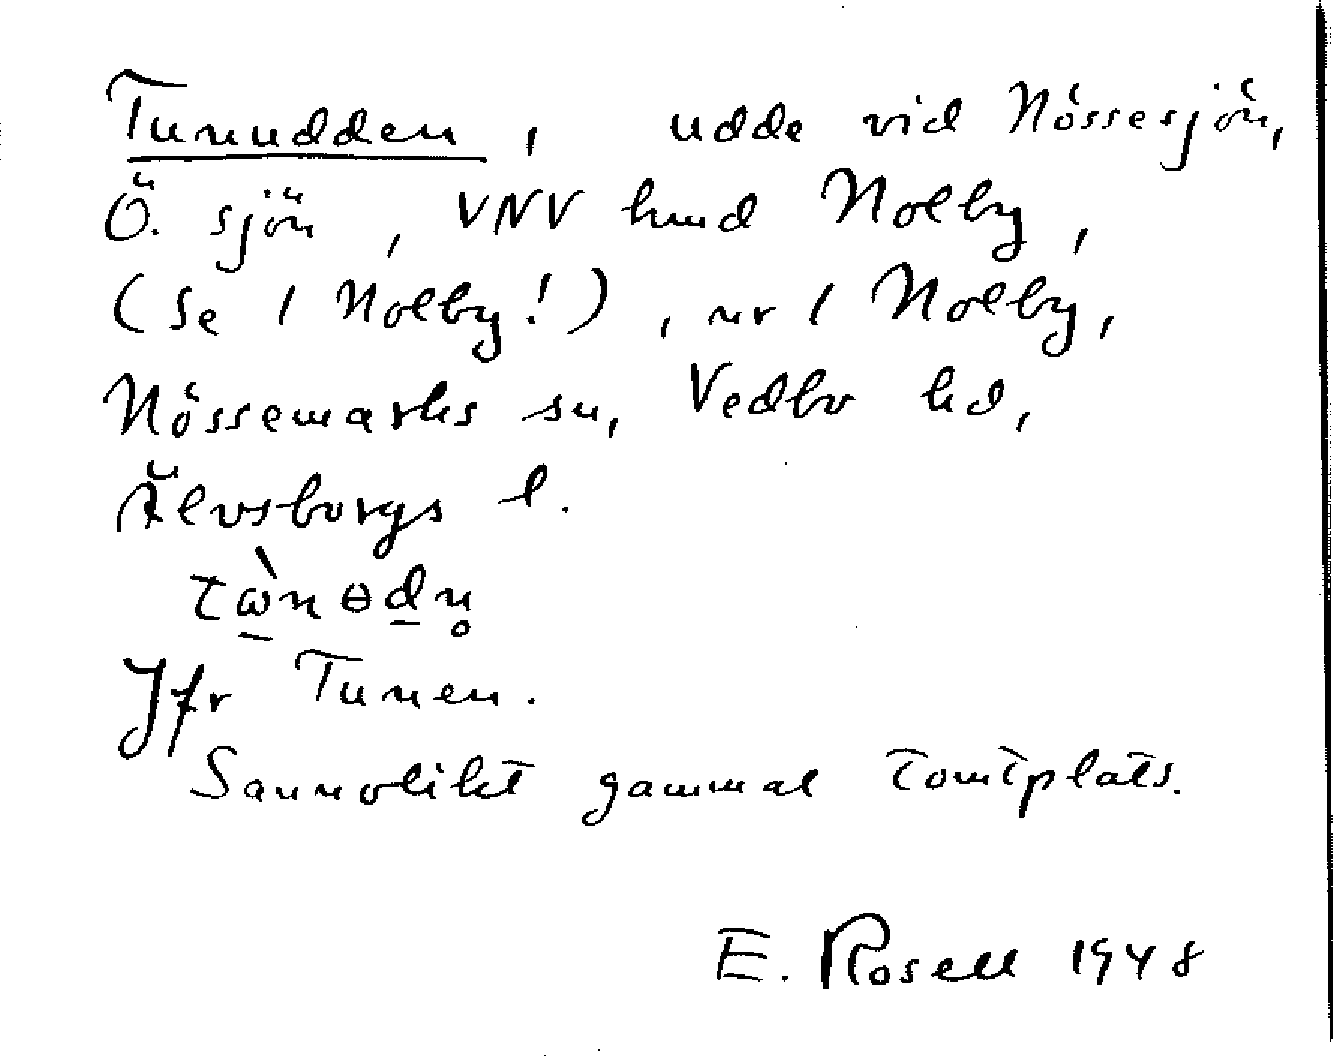 Tunudden, udde vid Nössesjön,
Ö. sjön, VNV hmd Nolby,
(se 1 Nolby!), nr 1 Nolby,
Nössemarks sn, Vedbo hd,
Älvsborgs l.
tὼ̲nɵd̲n̥
Jfr Tunen.
Sannolikt gammal tomtplats.
E. Rosell 1948